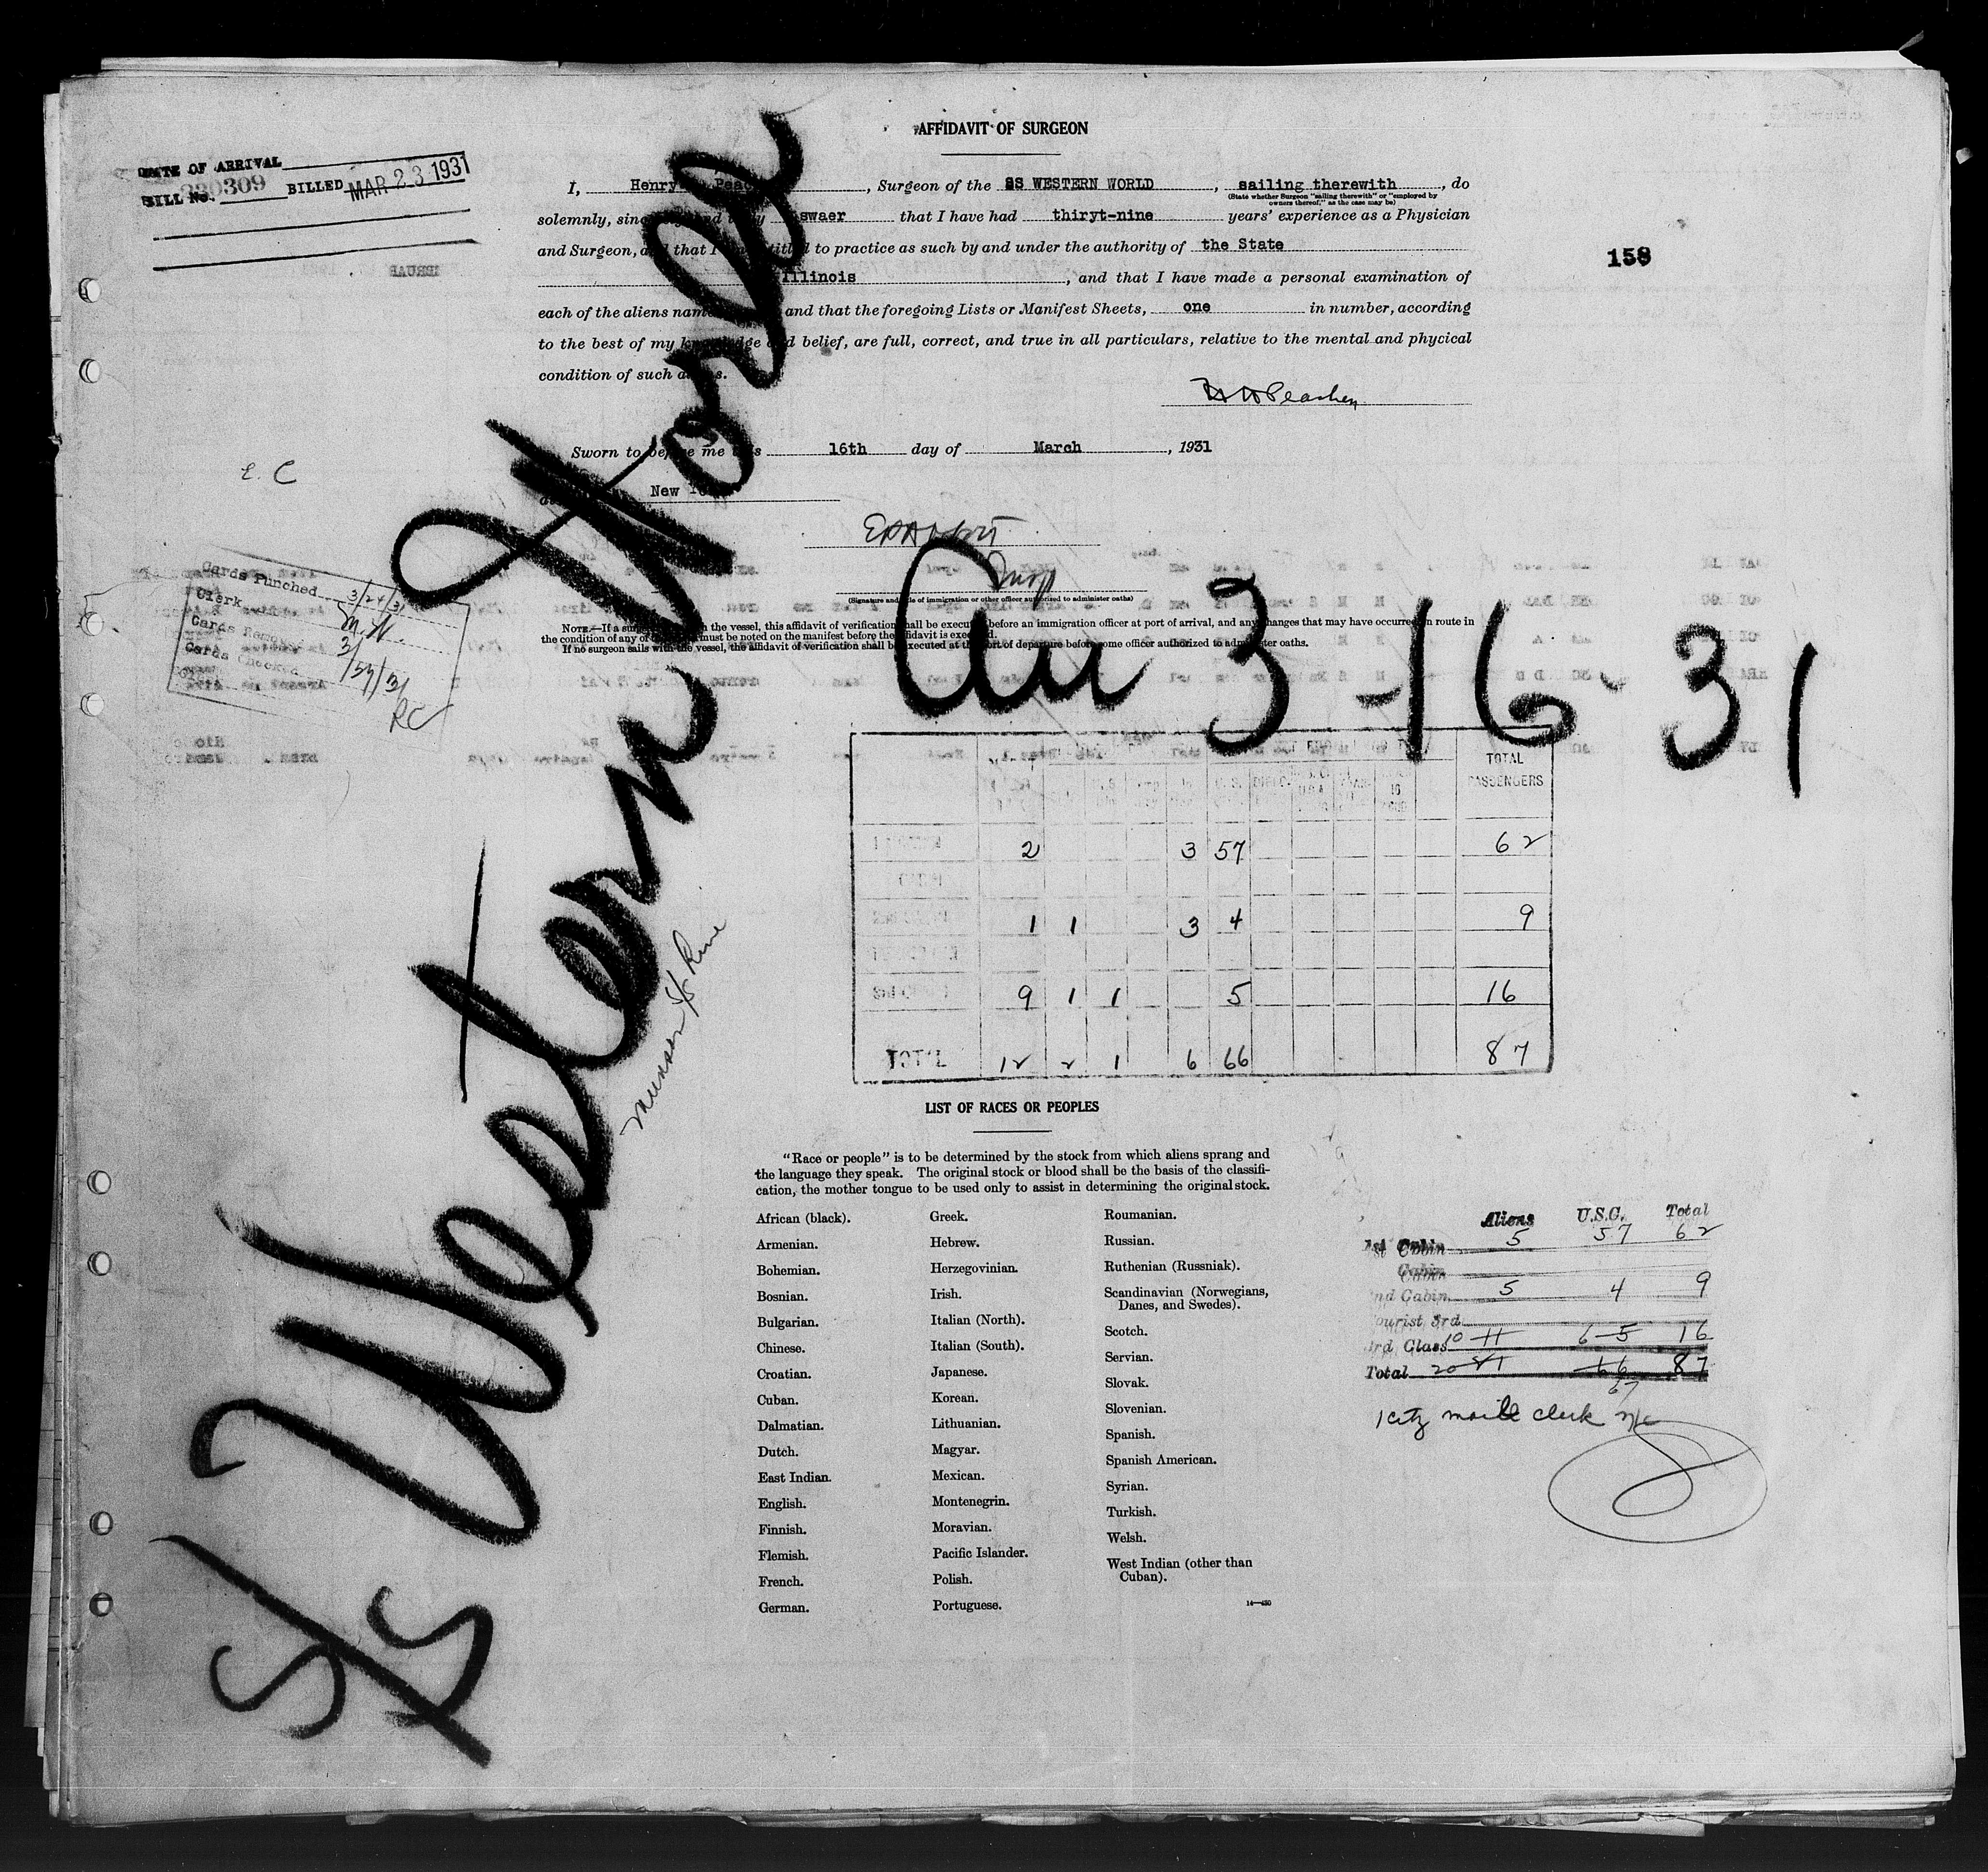 AFFIDAVIT OF SURGEON
DATE OF ARRIVAL
BILL No. 309 BILLED MAR 23 1931
I, Henry , Surgeon of the SS WESTERN WORLD, sailing therewith, do
(State whether Surgeon "sailing therewith" or "employed by
owners thereof," as the case may be)
solemnly, swaer that I have had thiryt-nine years' experience as a Physician
and Surgeon, and that I to practice as such by and under the authority of the State
Illinois, and that I have made a personal examination of
158
each of the aliens and that the foregoing Lists or Manifest Sheets, one in number, according
to the best of my knowledge and belief, are full, correct, and true in all particulars, relative to the mental and physical
condition of such
Sworn to before me this 16th day of March, 1931
New
(Signature and title of immigration or other officer authorized to administer oaths)
NOTE.—If a the vessel, this affidavit of verification shall be executed before an immigration officer at port of arrival, and any changes that may have occurred in route in
the condition of any of must be noted on the manifest before the affidavit is executed.
If no surgeon sails with the vessel, the affidavit of verification shall be executed at the port of departure before some officer authorized to administer oaths.
Cards Punched 3/24/31
Clerk
Cards Checked
RC
S/S Western World
3-16-31
TOTAL
PASSENGERS
2 3 57 62
1 1 3 4 9
9 1 1 5 16
TOTAL 12 2 1 6 66 87
Munson SS Line
LIST OF RACES OR PEOPLES
"Race or people" is to be determined by the stock from which aliens sprang and
the language they speak. The original stock or blood shall be the basis of the classifi-
cation, the mother tongue to be used only to assist in determining the original stock.
African (black).
Armenian.
Bohemian.
Bosnian.
Bulgarian.
Chinese.
Croatian.
Cuban.
Dalmatian.
Dutch.
East Indian.
English.
Finnish.
Flemish.
French.
German.
Greek.
Hebrew.
Herzegovinian.
Irish.
Italian (North).
Italian (South).
Japanese.
Korean.
Lithuanian.
Magyar.
Mexican.
Montenegrin.
Moravian.
Pacific Islander.
Polish.
Portuguese.
Roumanian.
Russian.
Ruthenian (Russniak).
Scandinavian (Norwegians,
Danes, and Swedes).
Scotch.
Servian.
Slovak.
Slovenian.
Spanish.
Spanish American.
Syrian.
Turkish.
Welsh.
West Indian (other than
Cuban).
14—430
Aliens U.S.C. Total
1st Cabin 5 57 62
Cabin
2nd Cabin 5 4 9
Tourist 3rd
3rd Class 10 11 6 5 16
Total 20 21 66 87
67
mail clerk